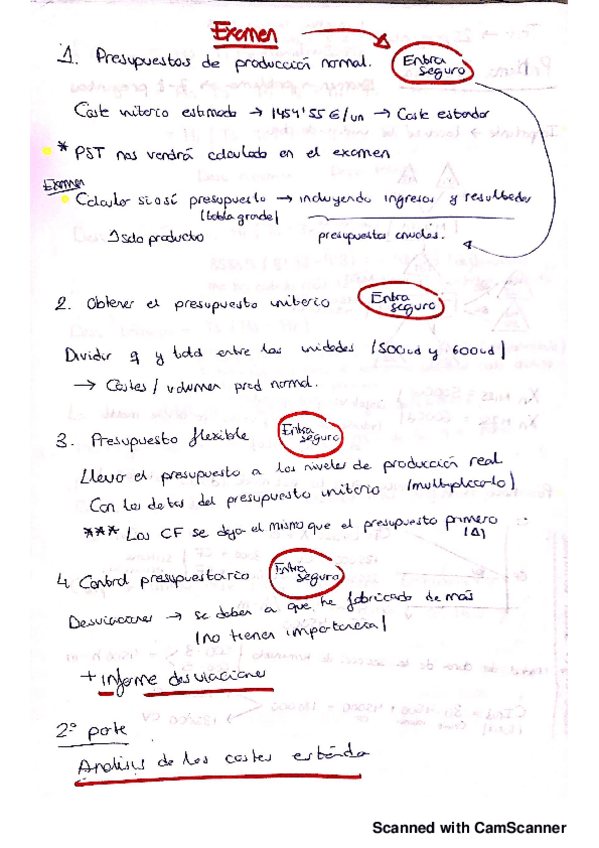 Examen
1. Presupuestos de producción normal. Entra seguro
Coste unitario estimado → 1454'55 €/un → Coste estandar
* PST nos vendrá calculado en el examen
Examen
Calcular si o sí presupuesto → incluyendo ingresos y resultados
(tabla grande)
1 solo producto presupuestos anuales.
2. Obtener el presupuesto unitario Entra seguro
Dividir q y total entre las unidades (500ud y 600ud)
→ Costes / volumen prod normal.
3. Presupuesto flexible Entra seguro
Llevo el presupuesto a los niveles de producción real
Con los datos del presupuesto unitario (multiplicarlo)
*** Los CF se deja el mismo que el presupuesto primero
(1)
4. Control presupuestario Entra seguro
Desviaciones → se deben a que he fabricado de más
(no tienen importancia)
+ informe desviaciones
2º parte
Análisis de los costes estánda
Scanned with CamScanner